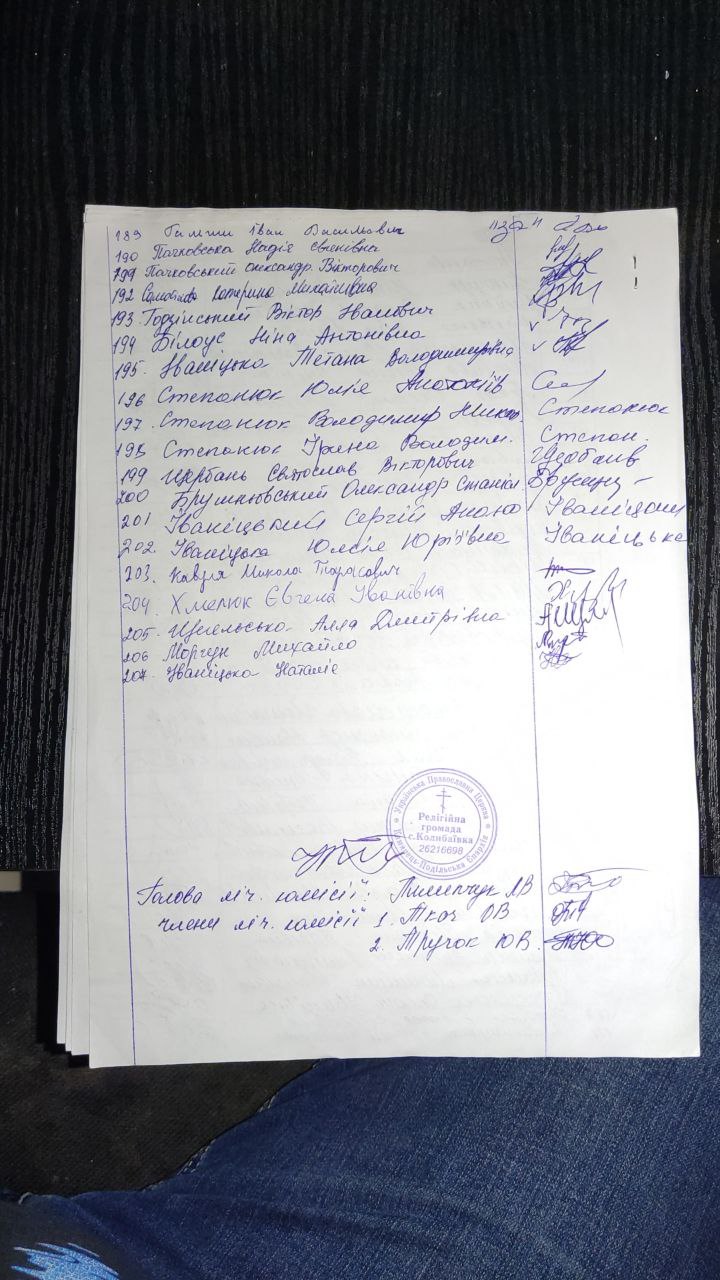 189 Іван Васильович "за"
190 Пачковська Надія Євгенівна
191 Пачковський Олександр Вікторович
192 Катерина Михайлівна
193. Годзінський Віктор Іванович
194 Білоус Ніна Антонівна
195. Іваніцька Тетана Володимирівна
196 Степанюк Юлія
197. Степанюк Володимир Микол. Степанюк
198 Степанюк Ірена Володим. Степан.
199 Щербань Святослав Вікторович
200 Олександр Станісл.
201 Іваніцький Сергій
202. Іваніцька Юлія Юрі'ївна Іваніцька
203. Микола Тарасович
204. Хмелюк Євгена Іванівна
205. Алла Дмитрівна
206 Моргун Михайло
207. Іваніцька Наталіє
Українська Православна Церква
Кам'янець-Подільська Єпархія
Релігійна
громада
с.Колибаївка
26216698
Голова ліч. комісії: Пилипчук ЛВ
члени ліч. комісії 1. Ткач ОВ
2. Тручок ЮВ.